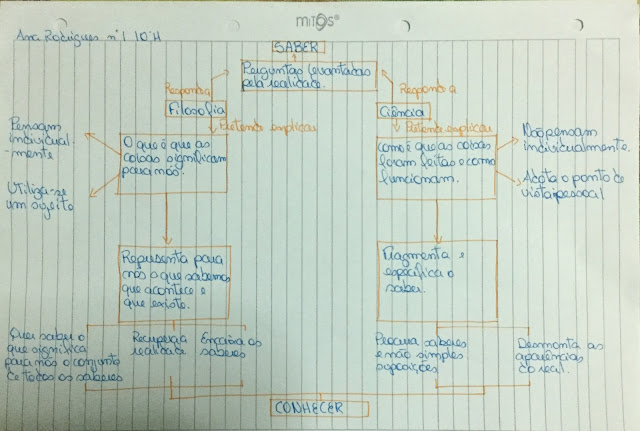 mitos®
Ana Rodrigues nº1 10ºH
SABER
Perguntas levantadas
pela realidade.
Responde a
Responde a
Filosofia
Ciência
Pretende explicar
Pretende explicar
Pensam
individual-
-mente
O que é que as
coisas significam
para nós.
como é que as coisas
foram feitas e como
funcionam.
Não pensam
individualmente.
Utiliza-se
um sujeito
Adota o ponto de
vista pessoal
Representa para
nós o que sabemos,
que acontece e
que existe.
Fragmenta e
especifica o
saber.
Quer saber o
que significa
para nós o conjunto
de todos os saberes
Recupera a
realidade
Encaixa os
saberes
Procura saberes
e não simples
suposições
Desmonta as
aparências
do real.
CONHECER